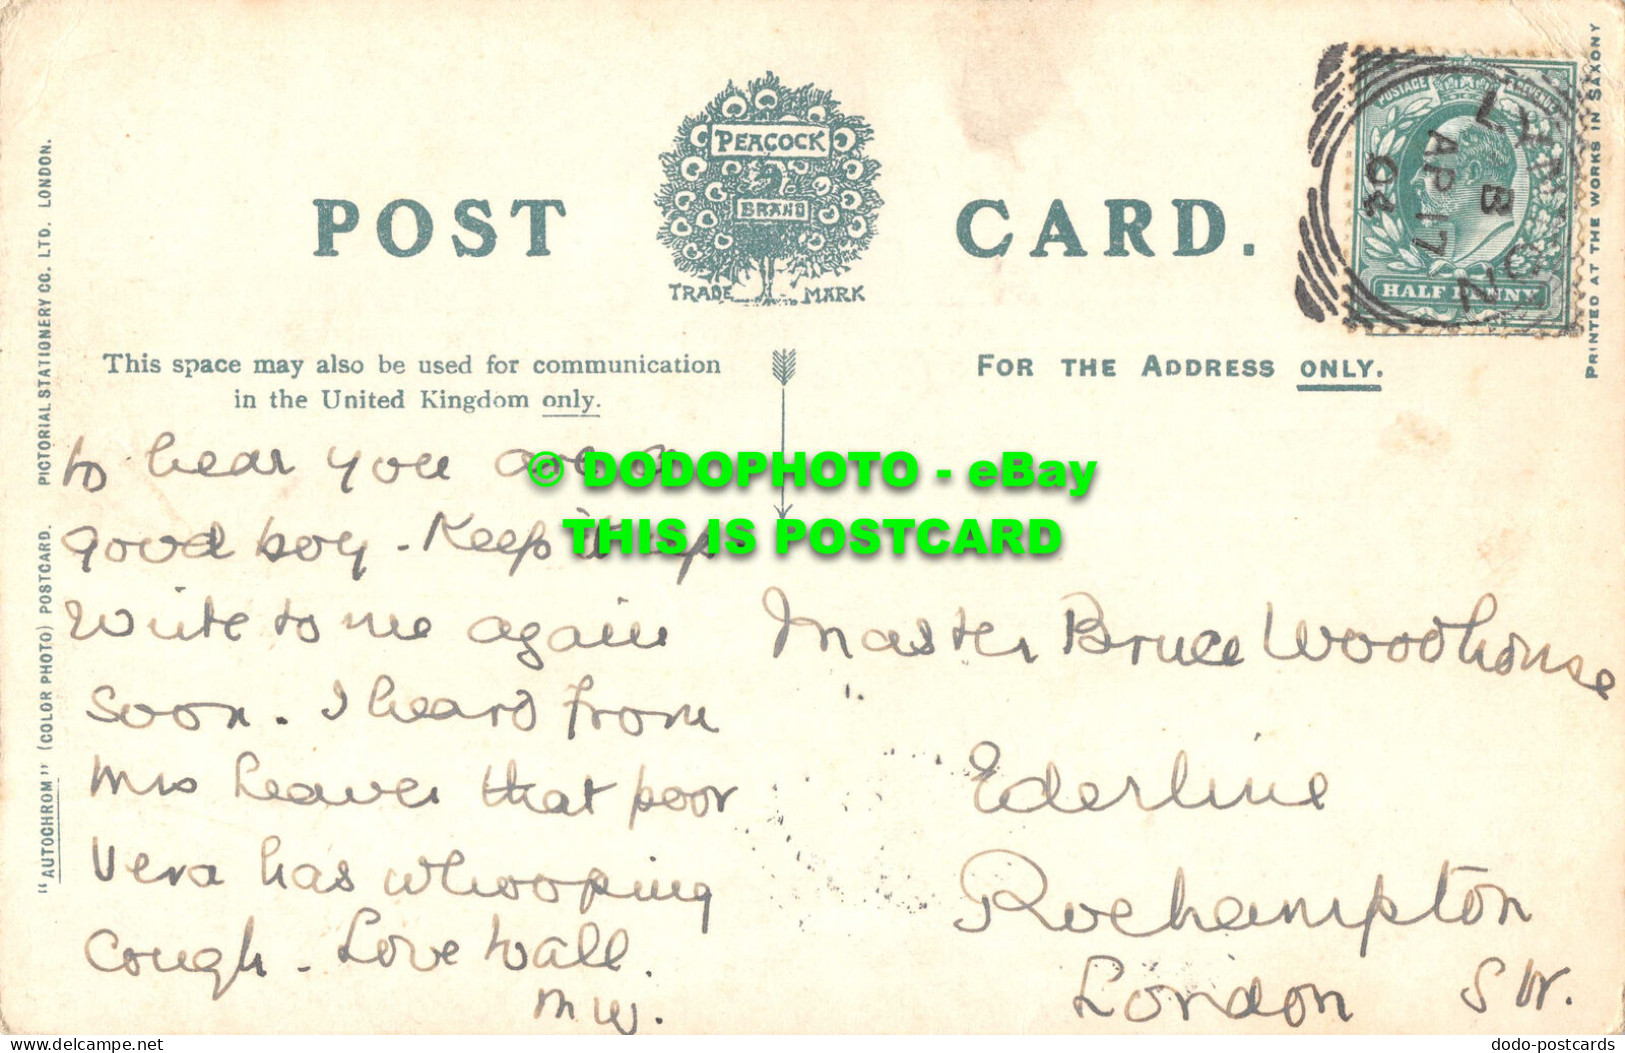 POST CARD.
PEACOCK
BRAND
TRADE MARK
POSTAGE & REVENUE
HALF PENNY
B
AP 17
04
PRINTED AT THE WORKS IN SAXONY
PICTORIAL STATIONERY CO. LTD. LONDON.
"AUTOCHROM" (COLOR PHOTO) POSTCARD.
This space may also be used for communication
in the United Kingdom only.
FOR THE ADDRESS ONLY.
to hear you are a
good boy. Keep it up
Write to me again
soon. I heard from
Mrs Leaver that poor
Vera has whooping
cough. Love to all.
MW.
Master Bruce Woodhouse
Ederline
Roehampton
London SW.
© DODOPHOTO - eBay
THIS IS POSTCARD
delcampe.net
dodo-postcards